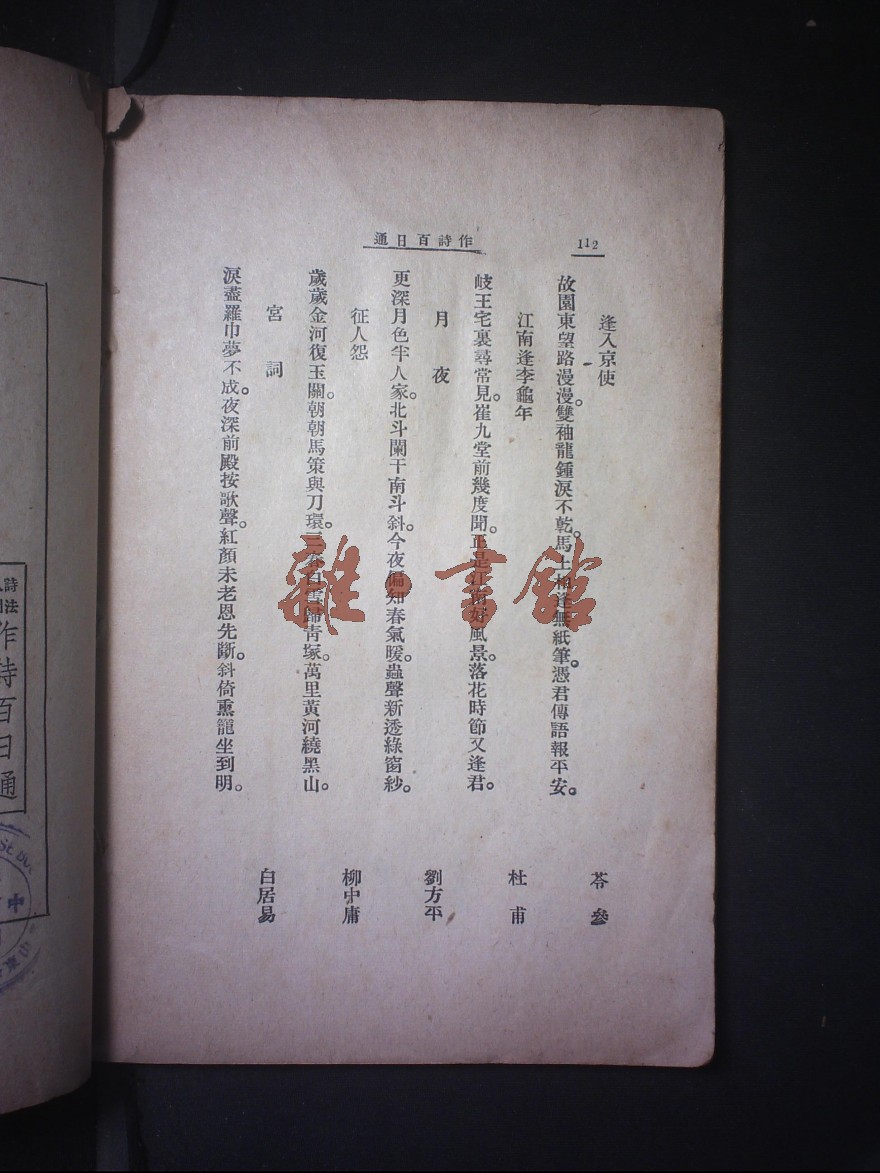 作詩百日通
112
逢入京使
岑參
故園東望路漫漫。雙袖龍鍾淚不乾。馬上相逢無紙筆。憑君傳語報平安。
江南逢李龜年
杜甫
岐王宅裏尋常見。崔九堂前幾度聞。正是江南好風景。落花時節又逢君。
月夜
劉方平
更深月色半人家。北斗闌干南斗斜。今夜偏知春氣暖。蟲聲新透綠窗紗。
征人怨
柳中庸
歲歲金河復玉關。朝朝馬策與刀環。三春白雪歸靑塚。萬里黃河繞黑山。
宮詞
白居易
淚盡羅巾夢不成。夜深前殿按歌聲。紅顏未老恩先斷。斜倚熏籠坐到明。
雜·書館
詩
法
作詩百日通
中